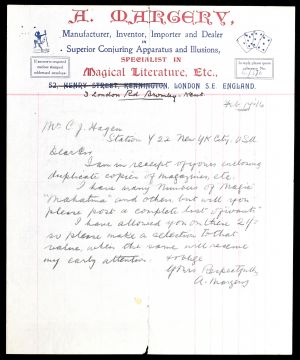 A. MARGERY,
Manufacturer, Inventor, Importer and Dealer
IN
Superior Conjuring Apparatus and Illusions,
SPECIALIST IN
Magical Literature, Etc.,
52, HENRY STREET, KENNINGTON, LONDON S.E. ENGLAND.
3 London Rd Bromley. Kent.
Mr C. J. Hagen
Station Y 22 New York City. USA
Dear Sir,
I am in receipt of yours enclosing
duplicate copies of magazines, etc.
I have many numbers of Magic
"Mahatma" and others, but will you
please post a complete list of wants
I have allowed you on these
so please make a selection to that
value, when the same will receive
my early attention.
& oblige
Yours Respectfully
A. Margery